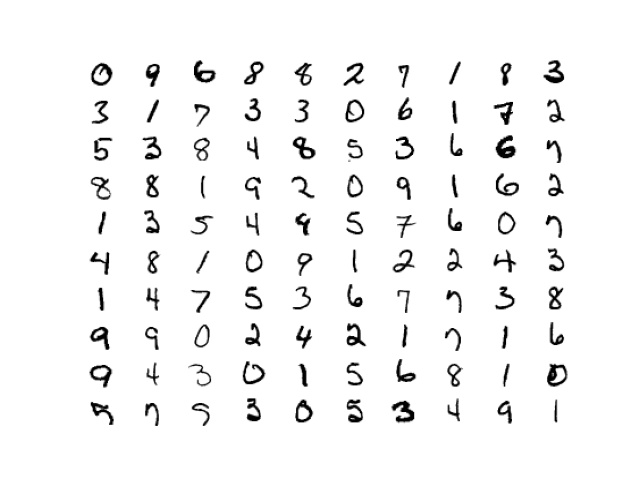 0 9 6 8 8 2 7 1 8 3
3 1 7 3 3 0 6 1 7 2
5 3 8 4 8 5 3 6 6 7
8 8 1 9 2 0 9 1 6 2
1 3 5 4 9 5 7 6 0 7
4 8 1 0 9 1 2 2 4 3
1 4 7 5 3 6 7 7 3 8
9 9 0 2 4 2 1 7 1 6
9 4 3 0 1 5 6 8 1 0
7 9 3 0 5 3 4 9 1